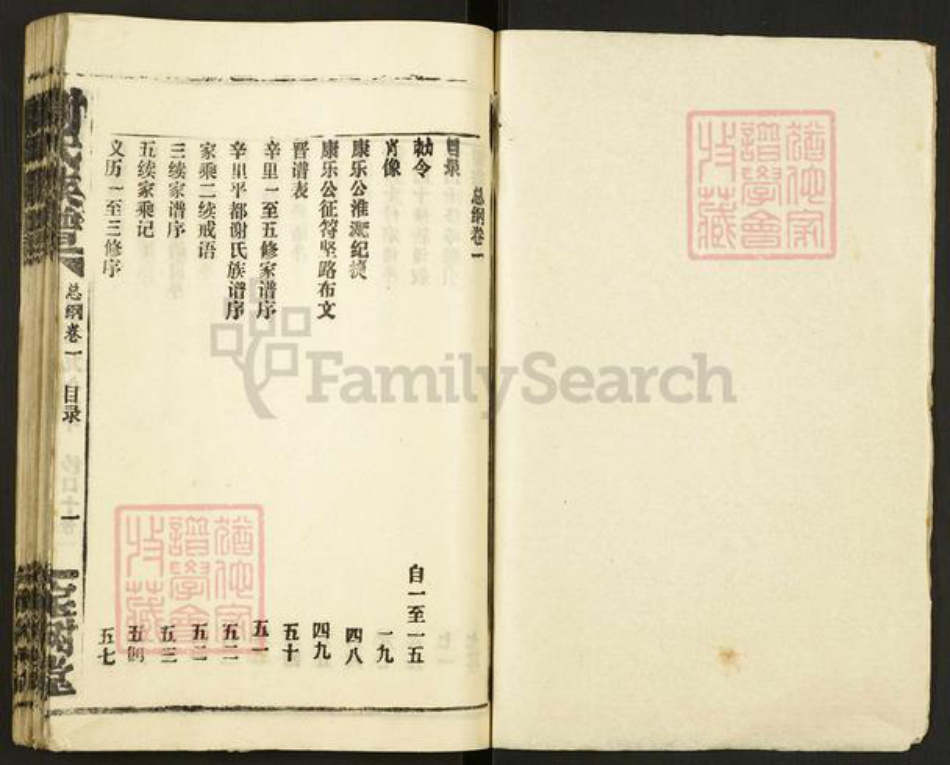 总纲卷一
目录
勅令 自一至一五
肖像 一九
康乐公淮淝纪绩 四八
康乐公征苻坚路布文 四九
晋谱表 五十
辛里一至五修家谱序 五一
辛里平都谢氏族谱序 五二
家乘二续戒语 五二
三续家谱序 五三
五续家乘记 五四
义历一至三修序 五七
谢氏族谱
总纲卷一 目录 一
宝树堂
猶他家譜學會收藏
猶他家譜學會收藏
FamilySearch